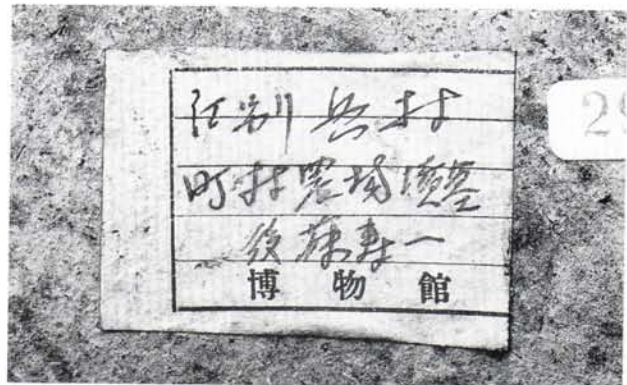 江別兵村
町村農場墳墓
後藤寿一
博物館
2